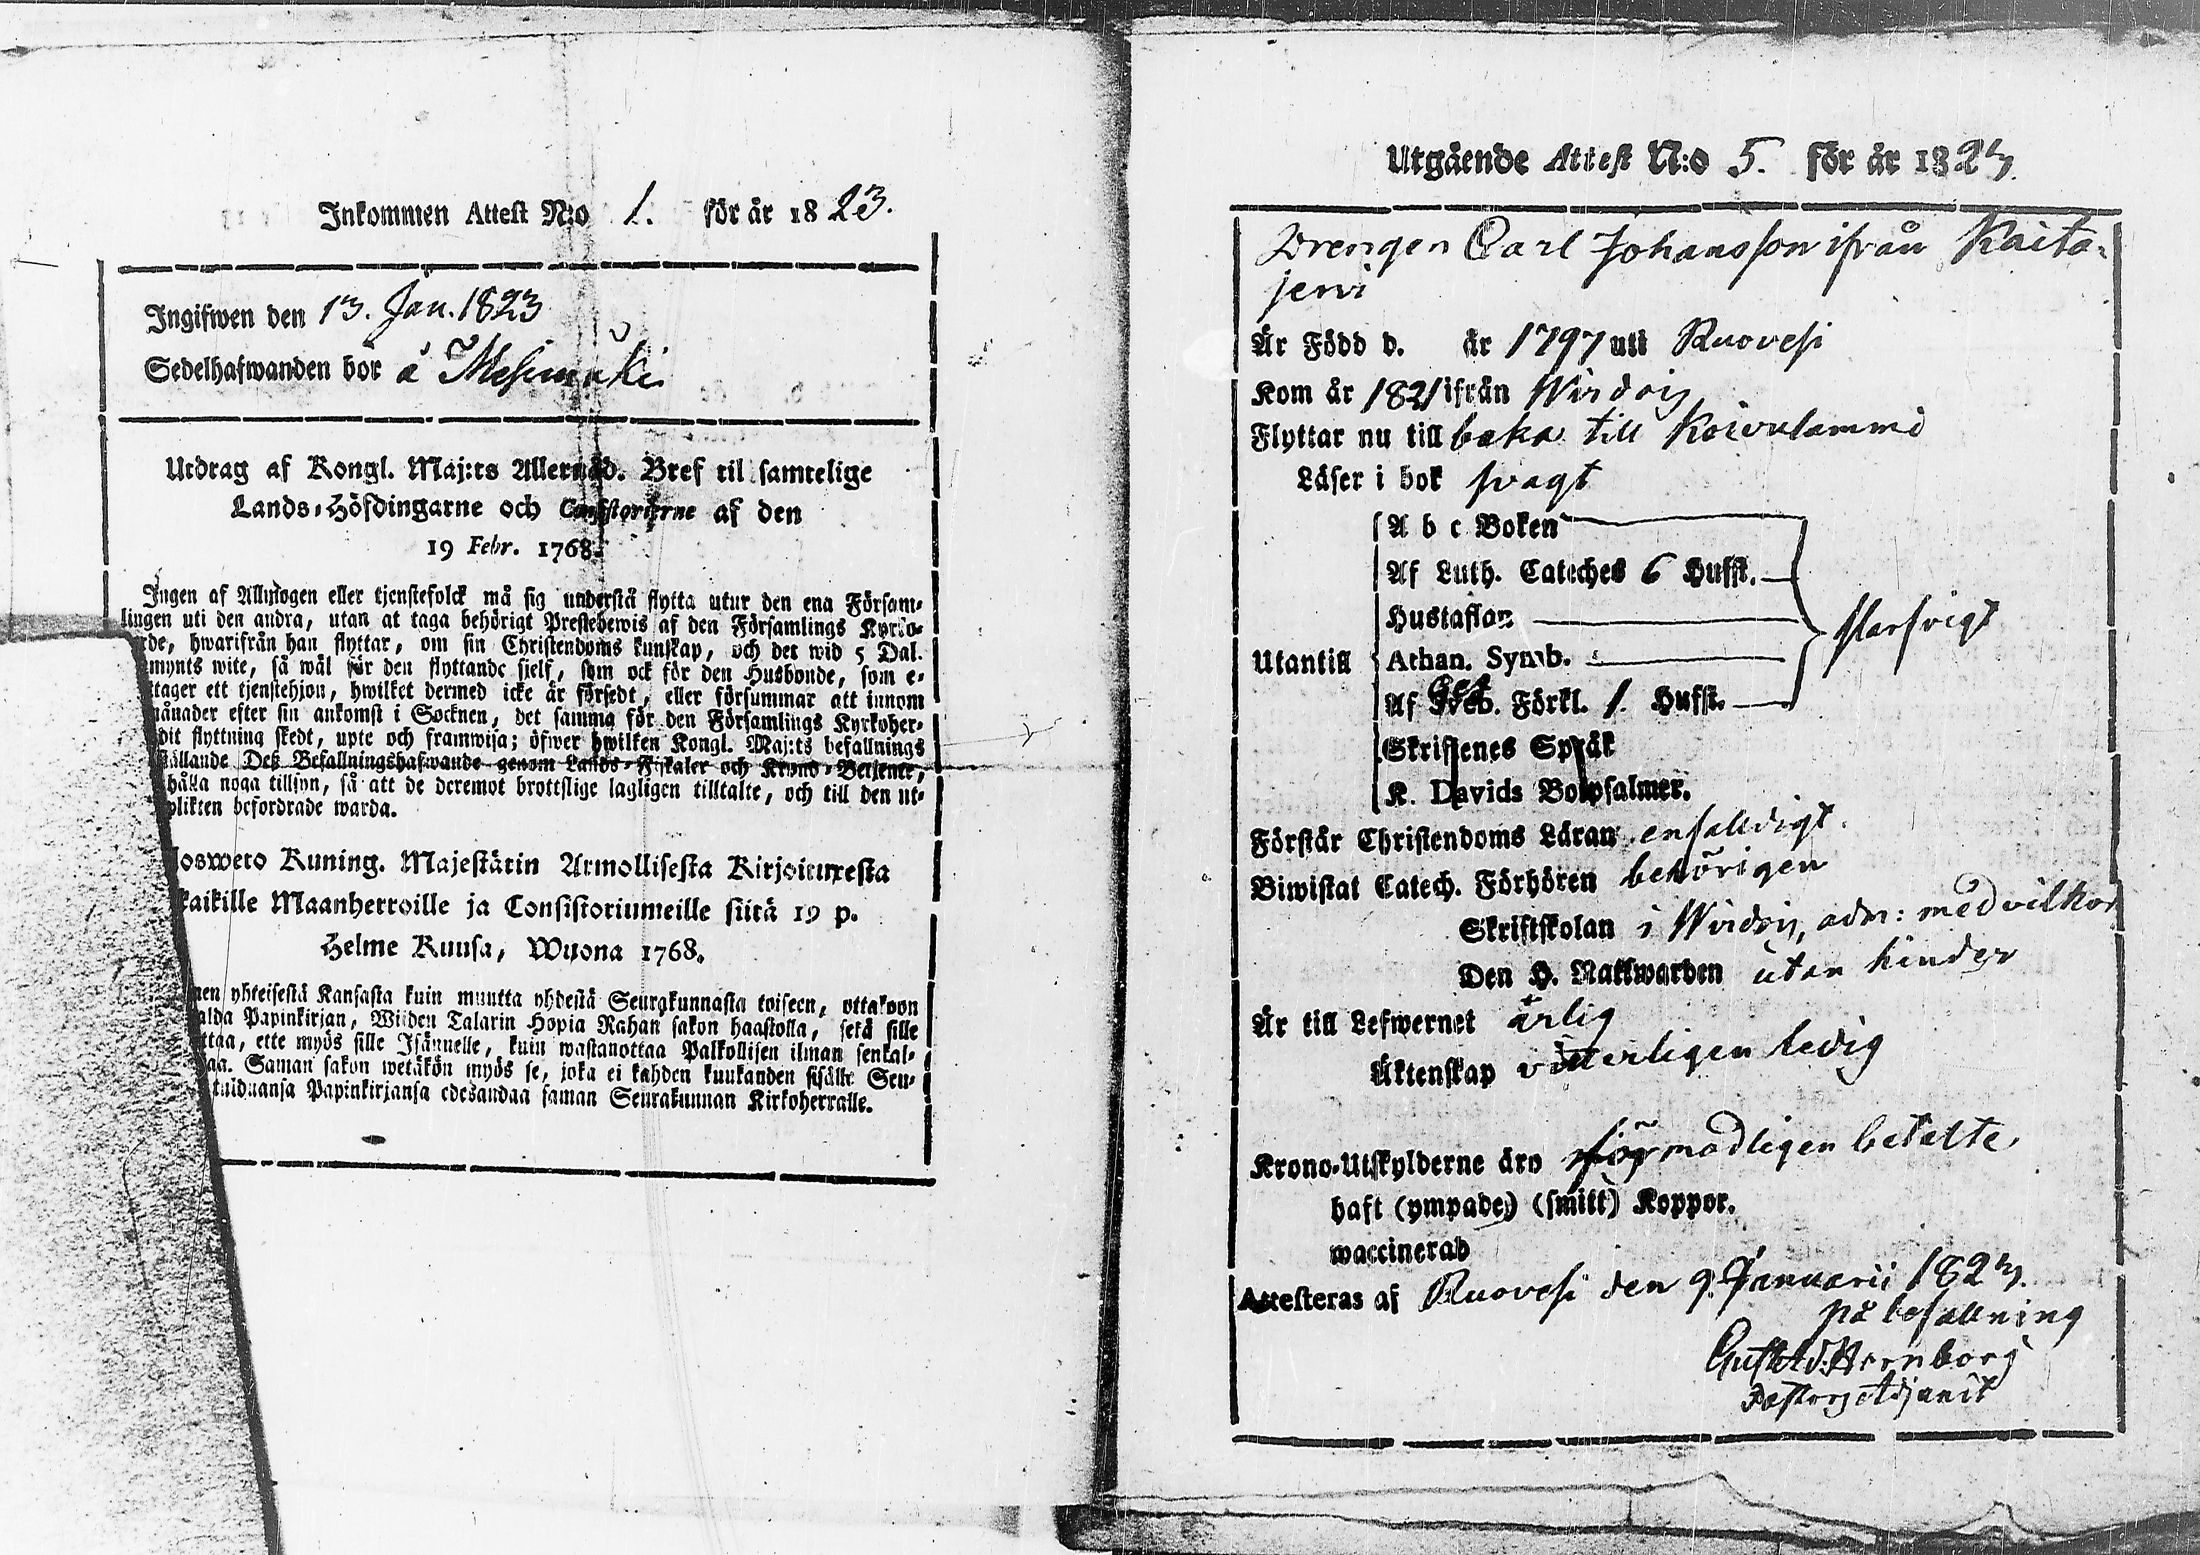 Inkommen Attest N:o 1. för år 1823.
Ingifwen den 13. Jan. 1823
Sedelhafwanden bor å
Utdrag af Kongl. Maj:ts Allernåd. Bref til samtelige
Lands-Höfdingarne och Consistorierne af den
19 Febr. 1768.
Ingen af Allmogen eller tjenstefolck må sig understå flytta utur den ena Försam-
lingen uti den andra, utan at taga behörigt Prestebewis af den Församlings Kyrko-
rde, hwarifrån han flyttar, om sin Christendoms kunskap, och det wid 5 Dal.
mynts wite, så wäl för den flyttande sjelf, som ock för den Husbonde, som e-
tager ett tjenstehjon, hwilket dermed icke är försedt, eller försummar att innom
månader efter sin ankomst i Socknen, det samma för den Församlings Kyrkoher-
dit flyttning skedt, upte och framwisa; öfwer hwilken Kongl. Maj:ts befallnings
ställande Deß Befallningshafwande genom Lands-Fiskaler och Krono-Betjente,
hålla noga tillsyn, så att de deremot brottslige lagligen tilltalte, och till den ut-
plikten befordrade warda.
losweto Kuning. Majestätin Armollisesta Kirjoituxesta
kaikille Maanherroille ja Consistoriumeille siitä 19 p.
Helme Kuusa, Wuona 1768.
nen yhteisestä Kansasta kuin muutta yhdestä Seurakunnasta toiseen, ottakoon
alda Papinkirjan, Wiiden Talarin Hopia Rahan sakon haastolla, sekä sille
ttaa, ette myös sille Isännelle, kuin wastanottaa Palkollisen ilman senkal-
aa. Saman sakon wetäkön myös se, joka ei kahden kuukanden sisälle Seu-
tulduansa Papinkirjansa edesandaa saman Seurakunnan Kirkoherralle.
Utgående Attest N:o 5. för år 1823.
Drengen Carl Johansson ifrån Kaita-
jervi
Är Född d. år 1797 uti Ruovesi
Kom år 1821 ifrån Wirdois
Flyttar nu till baka till Koivulammi
Läser i bok svagt
A b c Boken
Af Luth. Cateches 6 Hufst.
Hustaflan
Utantill Athan. Symb. Klarsvigt
Af Sveb. Förkl. 1. Hufst.
Skriftenes Språk
K. Davids Botpsalmer.
Förstår Christendoms Läran enfalldigt.
Biwistat Catech. Förhören behörigen
Skriftskolan i Wirdois, adm: med vilkor
Den H. Nattwarden utan hinder
Är till Lefwernet ärlig
Äktenskap vitterligen ledig
Krono-Utskylderne äro förmodligen betalte.
haft (ympade) (smitt) Koppor.
waccinerad
Attesteras af Ruovesi den 9 Januarii 1823.
på befallning